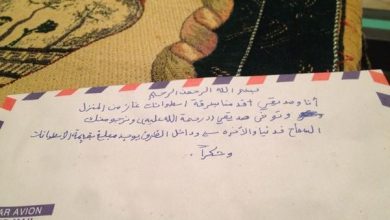 بسم الله الرحمن الرحيم
أنا وصديقي أقدمنا بسرقة اسطوانات غاز من المنزل
وتوفى صديقي (رحمة الله عليه) ونرجو منك
السماح في دنيا والآخره وداخل الظرف يوجد مبلغ بقيمة الاسطوانات
وشكراً
PAR AVION
AR MAIL